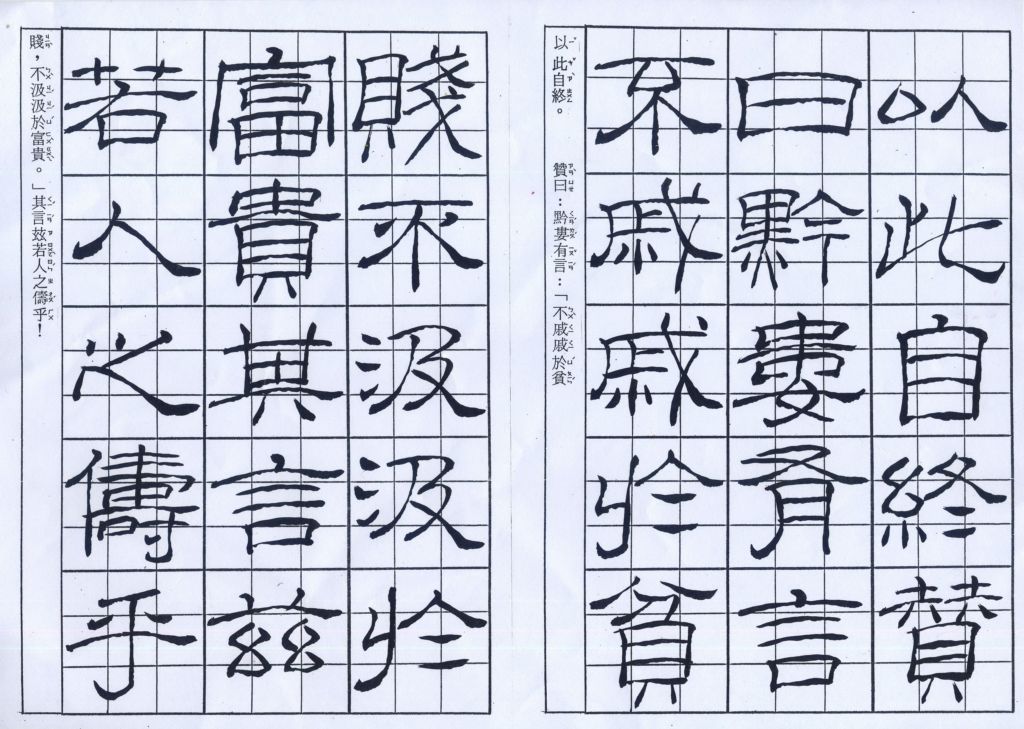 以此自終。　　贊曰：黔婁有言：「不戚戚於貧
以此自終贊
曰黔婁有言
不戚戚於貧
賤，不汲汲於富貴。」其言茲若人之儔乎！
賤不汲汲於
富貴其言茲
若人之儔乎